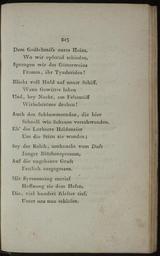 205
Dem Goldschmidt eures Hains,
Wo wir opfernd schieden,
Sprengen wir des Götterweins
Fromm, ihr Tyndariden!
Blickt voll Huld auf unser Schiff,
Wann Gewitter toben
Und, bey Nacht, am Felsenriff
Wirbelströme drohen!
Auch den Schlummernden, die hier
Schnell wie Schaum verschwanden,
Eh' die Lorbeern
Um die Stirn sie wanden;
Sey der Kelch, umhaucht vom Duft
Junger Blüthensprossen,
Auf die ungeheure Gruft
Freilich ausgegossen.
Mit Syrenensang entrief
Hoffnung sie dem Hafen,
Die, viel hundert Klafter tief,
Unter uns nun schlafen.